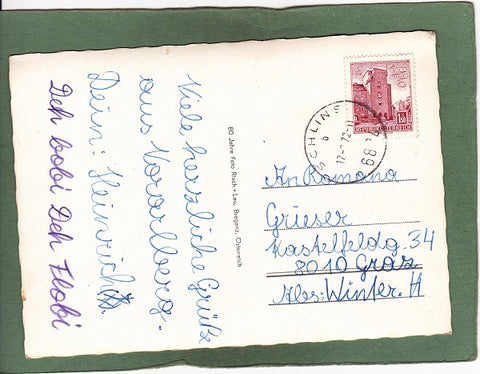 Viele herzliche Grüße
aus Vorarlberg.
Dein: Heinrich
Deh bobi Deh Flobi
80 Jahre Foto Risch-Lau, Bregenz, Österreich
SCHLINS
b
REPUBLIK ÖSTERREICH
An Romana
Grieser
Kastelfeldg. 34
8010 Graz
Abs: Winter. H